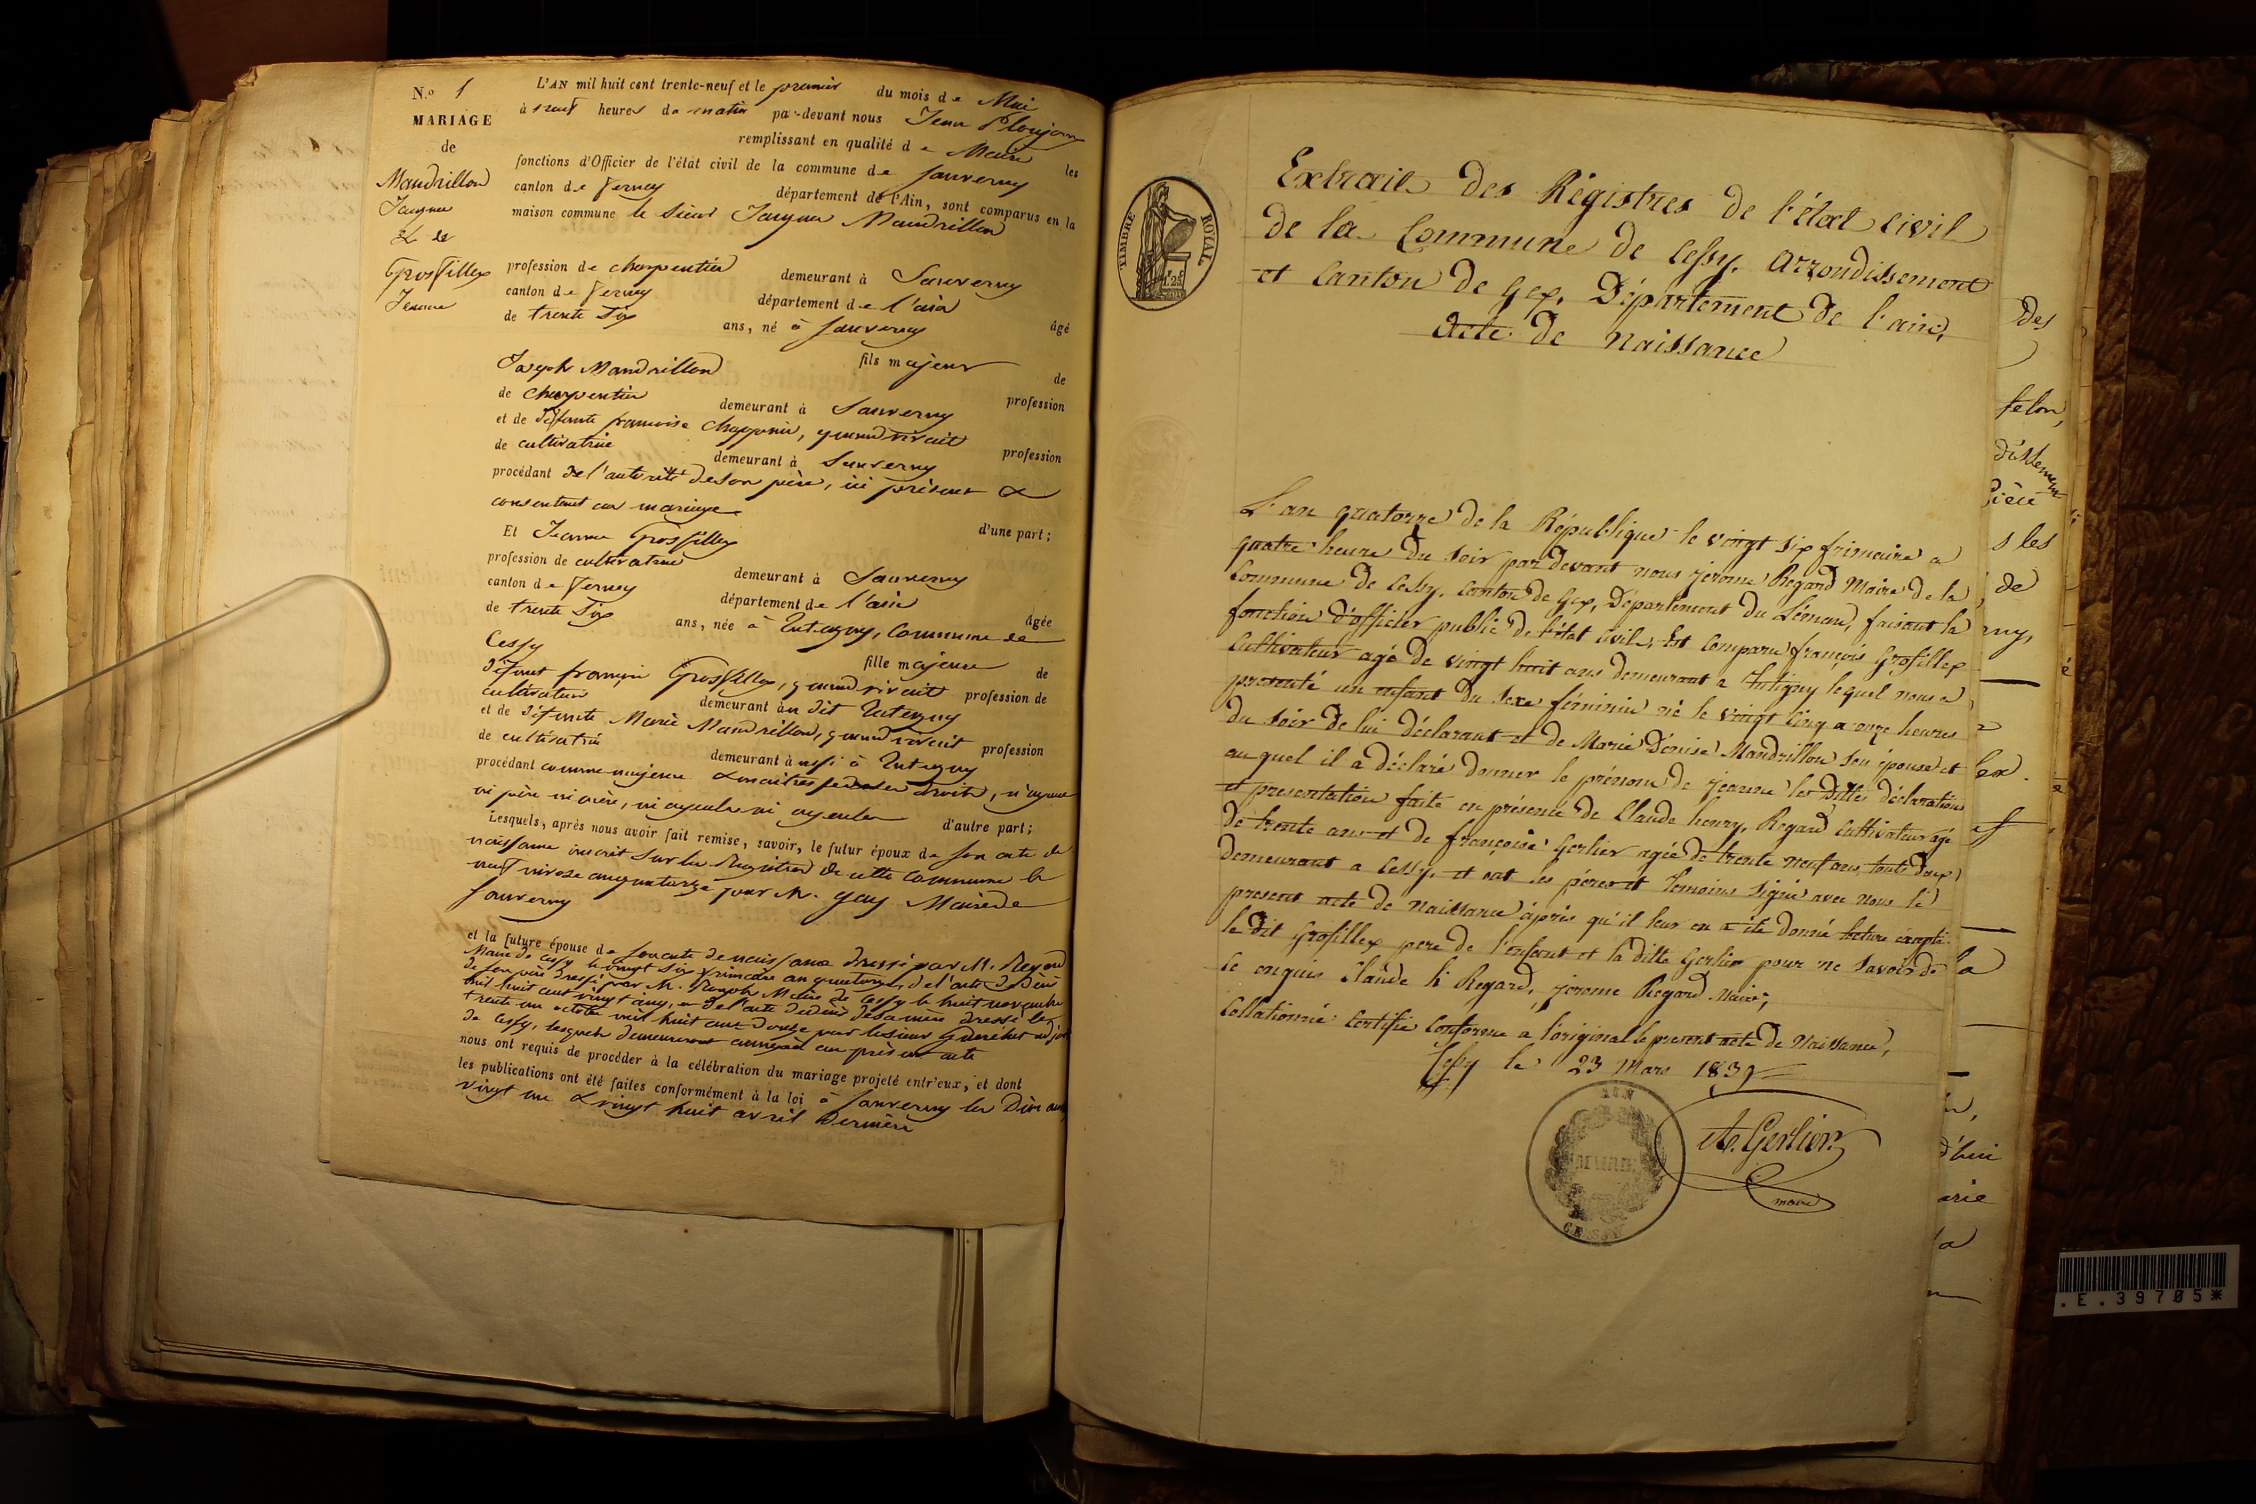 N.º 1
MARIAGE
de
Mandrillon
Jacques
& de
Grosfillex
Jeanne
L'AN mil huit cent trente-neuf et le premier du mois de Mai
à neuf heures du matin par-devant nous Jean
remplissant en qualité de Maire les
fonctions d'Officier de l'état civil de la commune de Sauverny
canton de Ferney département de l'Ain, sont comparus en la
maison commune le Sieur Jacques Mandrillon
profession de charpentier demeurant à Sauverny
canton de Ferney département de l'ain
de trente Six ans, né à Sauverny âgé
fils majeur de
Joseph Mandrillon profession
de charpentier demeurant à Sauverny
et de défunte françoise quand vivait profession
de cultivatrice demeurant à Sauverny
procédant de l'autorité de son père, ici présent &
consentant au mariage d'une part;
Et Jeanne Grosfillex
profession de cultivatrice demeurant à Sauverny
canton de Ferney département de l'ain
de trente Six ans, née à Tutegny, Commune de âgée
Cessy fille majeure de
défunt françois Grosfillex, quand vivait profession de
cultivateur demeurant au dit Tutegny
et de défunte Marie Mandrillon, quand vivait profession
de cultivatrice demeurant aussi à Tutegny
procédant comme majeure & maitresse de ses droits, n'ayant
ni père ni mère, ni ayeule ni ayeul d'autre part;
Lesquels, après nous avoir fait remise, savoir, le futur époux de son acte de
naissance inscrit sur les Registres de cette Commune le
neuf nivose an quatorze par M. Gay Maire de
Sauverny
et la future épouse de son acte de naissance dressé par M. Regard
Maire de Cessy le vingt Six frimaire an quatorze, de l'acte de décès
de son père dressé par M. Maire de Cessy le huit novembre
mil huit cent vingt cinq, et de l'acte de décès de sa mère dressé le
trente un octobre mil huit cent douze par le sieur adjoint
de Cessy, lesquels demeureront annexés au présent acte
nous ont requis de procéder à la célébration du mariage projeté entr'eux, et dont
les publications ont été faites conformément à la loi à Sauverny les Dimanches
vingt un & vingt huit avril Dernier
TIMBRE ROYAL
Extrait des Régistres de l'état civil
de la Commune de Cessy. Arrondissement
et Canton de Gex, Département de l'ain,
Acte de Naissance
L'an quatorze de la République le vingt six frimaire a
quatre heure du soir par devant nous jerome Regard Maire de la
Commune de Cessy, canton de Gex, Département du Léman, faisant la
fonction d'officier public de l'état civil, Est comparu françois Grosfillex
Cultivateur agé de vingt huit ans demeurant a Tutigny lequel nous a
presenté un enfant du sexe féminin né le vingt cinq a onze heures
du soir de lui déclarant et de Marie Dénise Mandrillon son épouse et
auquel il a déclaré donner le prénom de jeanne les dittes déclarations
et presentation faite en présence de Claude henry, Regard Cultivateur agé
de trente ans et de françoise Gerlier agée de trente neuf ans, touts deux
demeurant a Cessy, et ont les pères et temoins signé avec nous le
present acte de naissance après qu'il leur en a été donné lecture excepté
le dit Grosfillex pere de l'enfant et la ditte Gerlier pour ne savoir de
ce enquis Claude h Regard, jerome Regard Maire,
Collationné certifié conforme a l'original le present acte de Naissance,
Cessy le 23 Mars 1839
Gerlier
maire
AIN
MAIRIE
CESSY
des
s les
de
la
d'hui
arie
.E.39705*